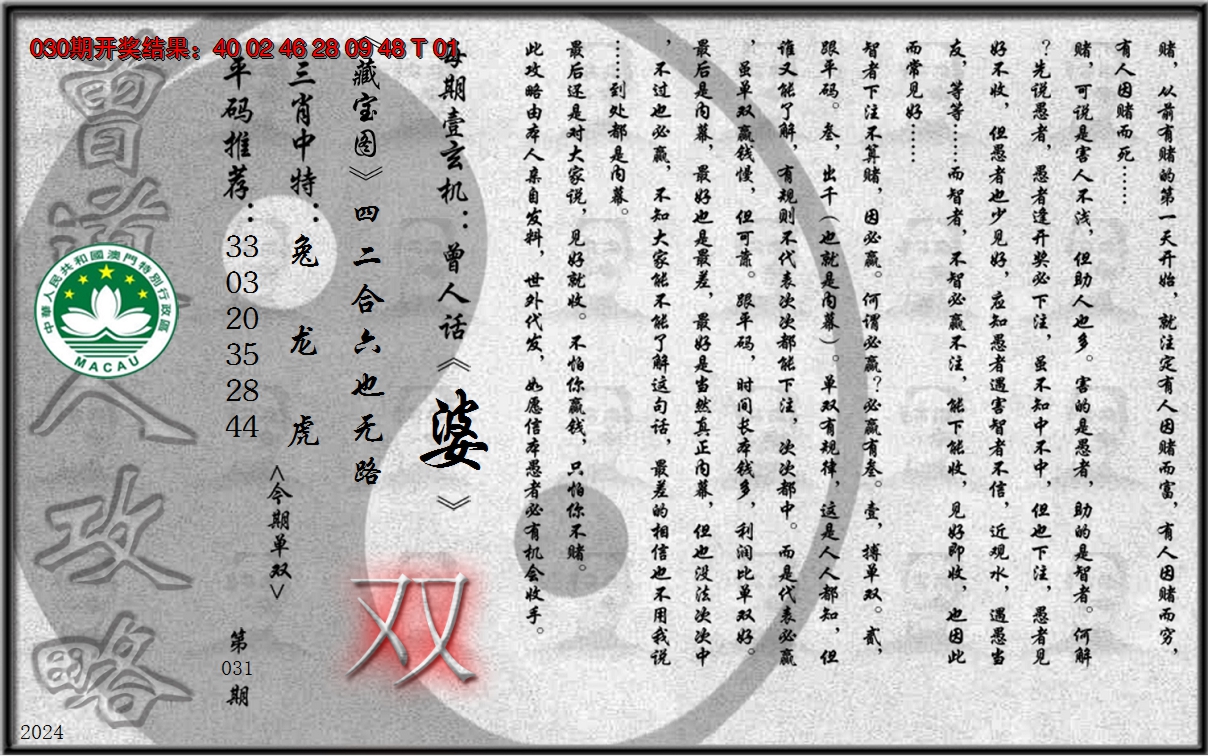 030期开奖结果：40 02 46 28 09 48 T 01
赌，从前有赌的第一天开始，就注定有人因赌而富，有人因赌而穷，
有人因赌而死……
赌，可说是害人不浅，但助人也多。害的是愚者，助的是智者。何解
？先说愚者，愚者逢开奖必下注，虽不知中不中，但也下注，愚者见
好不收，但愚者也少见好，应知愚者遇害智者不信，近观水，遇愚当
友，等等……而智者，不智必赢不注，能下能收，见好即收，也因此
而常见好……
智者下注不算赌，因必赢。何谓必赢？必赢有叁。壹，搏单双。贰，
跟平码。叁，出千（也就是内幕）。单双有规律，这是人人都知，但
谁又能了解，有规则不代表次次都能下注，次次都中。而是代表必赢
，虽单双赢钱慢，但可靠。跟平码，时间长本钱多，利润比单双好。
最后是内幕，最好也是最差，最好是当然真正内幕，但也没法次次中
，不过也必赢，不知大家能不能了解这句话，最差的相信也不用我说
……到处都是内幕。
最后还是对大家说，见好就收。不怕你赢钱，只怕你不赌。
此攻略由本人亲自发料，世外代发，如愿信本愚者必有机会收手。
每期壹玄机：曾人话《婆》
《藏宝图》四二合六也无路
双
三肖中特：兔 龙 虎
<今期单双>
平码推荐：
33
03
20
35
28
44
第
031
期
曾道人攻略
中華人民共和國澳門特別行政區
MACAU
2024